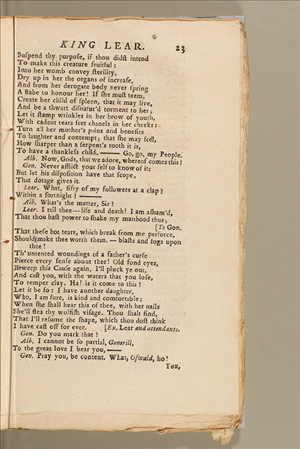 KING LEAR. 23
Suſpend thy purpoſe, if thou didſt intend
To make this creature fruitful:
Into her womb convey ſterility,
Dry up in her the organs of increaſe,
And from her derogate body never ſpring
A Babe to honour her! If ſhe muſt teem,
Create her child of ſpleen, that it may live,
And be a thwart diſnatur'd torment to her;
Let it ſtamp wrinkles in her brow of youth,
With cadent tears fret chanels in her cheeks:
Turn all her mother's pains and benefits
To laughter and contempt; that ſhe may feel,
How ſharper than a ſerpent's tooth it is,
To have a thankleſs child, —— Go, go, my People.
Alb. Now, Gods, that we adore, whereof comes this?
Gon. Never afflict your ſelf to know of it:
But let his diſpoſition have that ſcope,
That dotage gives it.
Lear. What, fifty of my followers at a clap?
Within a fortnight? ——
Alb. What's the matter, Sir?
Lear. I tell thee — life and death! I am aſham'd,
That thou haſt power to ſhake my manhood thus;
[To Gon.
That theſe hot tears, which break from me perforce,
Should make thee worth them. — blaſts and fogs upon
thee!
Th' untented woundings of a father's curſe
Pierce every ſenſe about thee! Old fond eyes,
Beweep this Cauſe again, I'll pluck ye out,
And caſt you, with the waters that you loſe,
To temper clay. Ha! is it come to this?
Let it be ſo: I have another daughter,
Who, I am ſure, is kind and comfortable;
When ſhe ſhall hear this of thee, with her nails
She'll flea thy wolfiſh viſage. Thou ſhalt find,
That I'll reſume the ſhape, which thou doſt think
I have caſt off for ever. [Ex. Lear and attendants.
Gon. Do you mark that?
Alb. I cannot be ſo partial, Gonerill,
To the great love I bear you, ——
Gon. Pray you, be content. What, Oſwald, ho!
You,